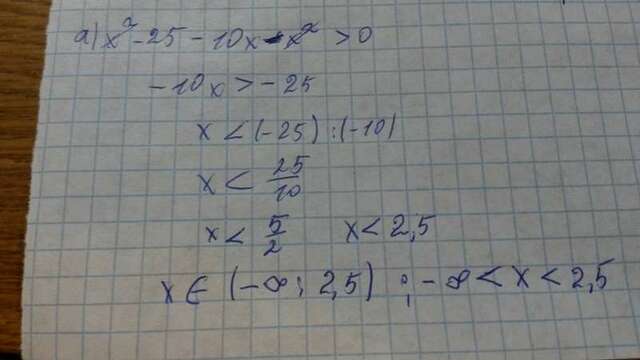 а) x² - 25 - 10x - x² > 0
- 10x > - 25
x < (-25) : (-10)
x < 25/10
x < 5/2 x < 2,5
x ∈ (-∞; 2,5) ; -∞ < x < 2,5